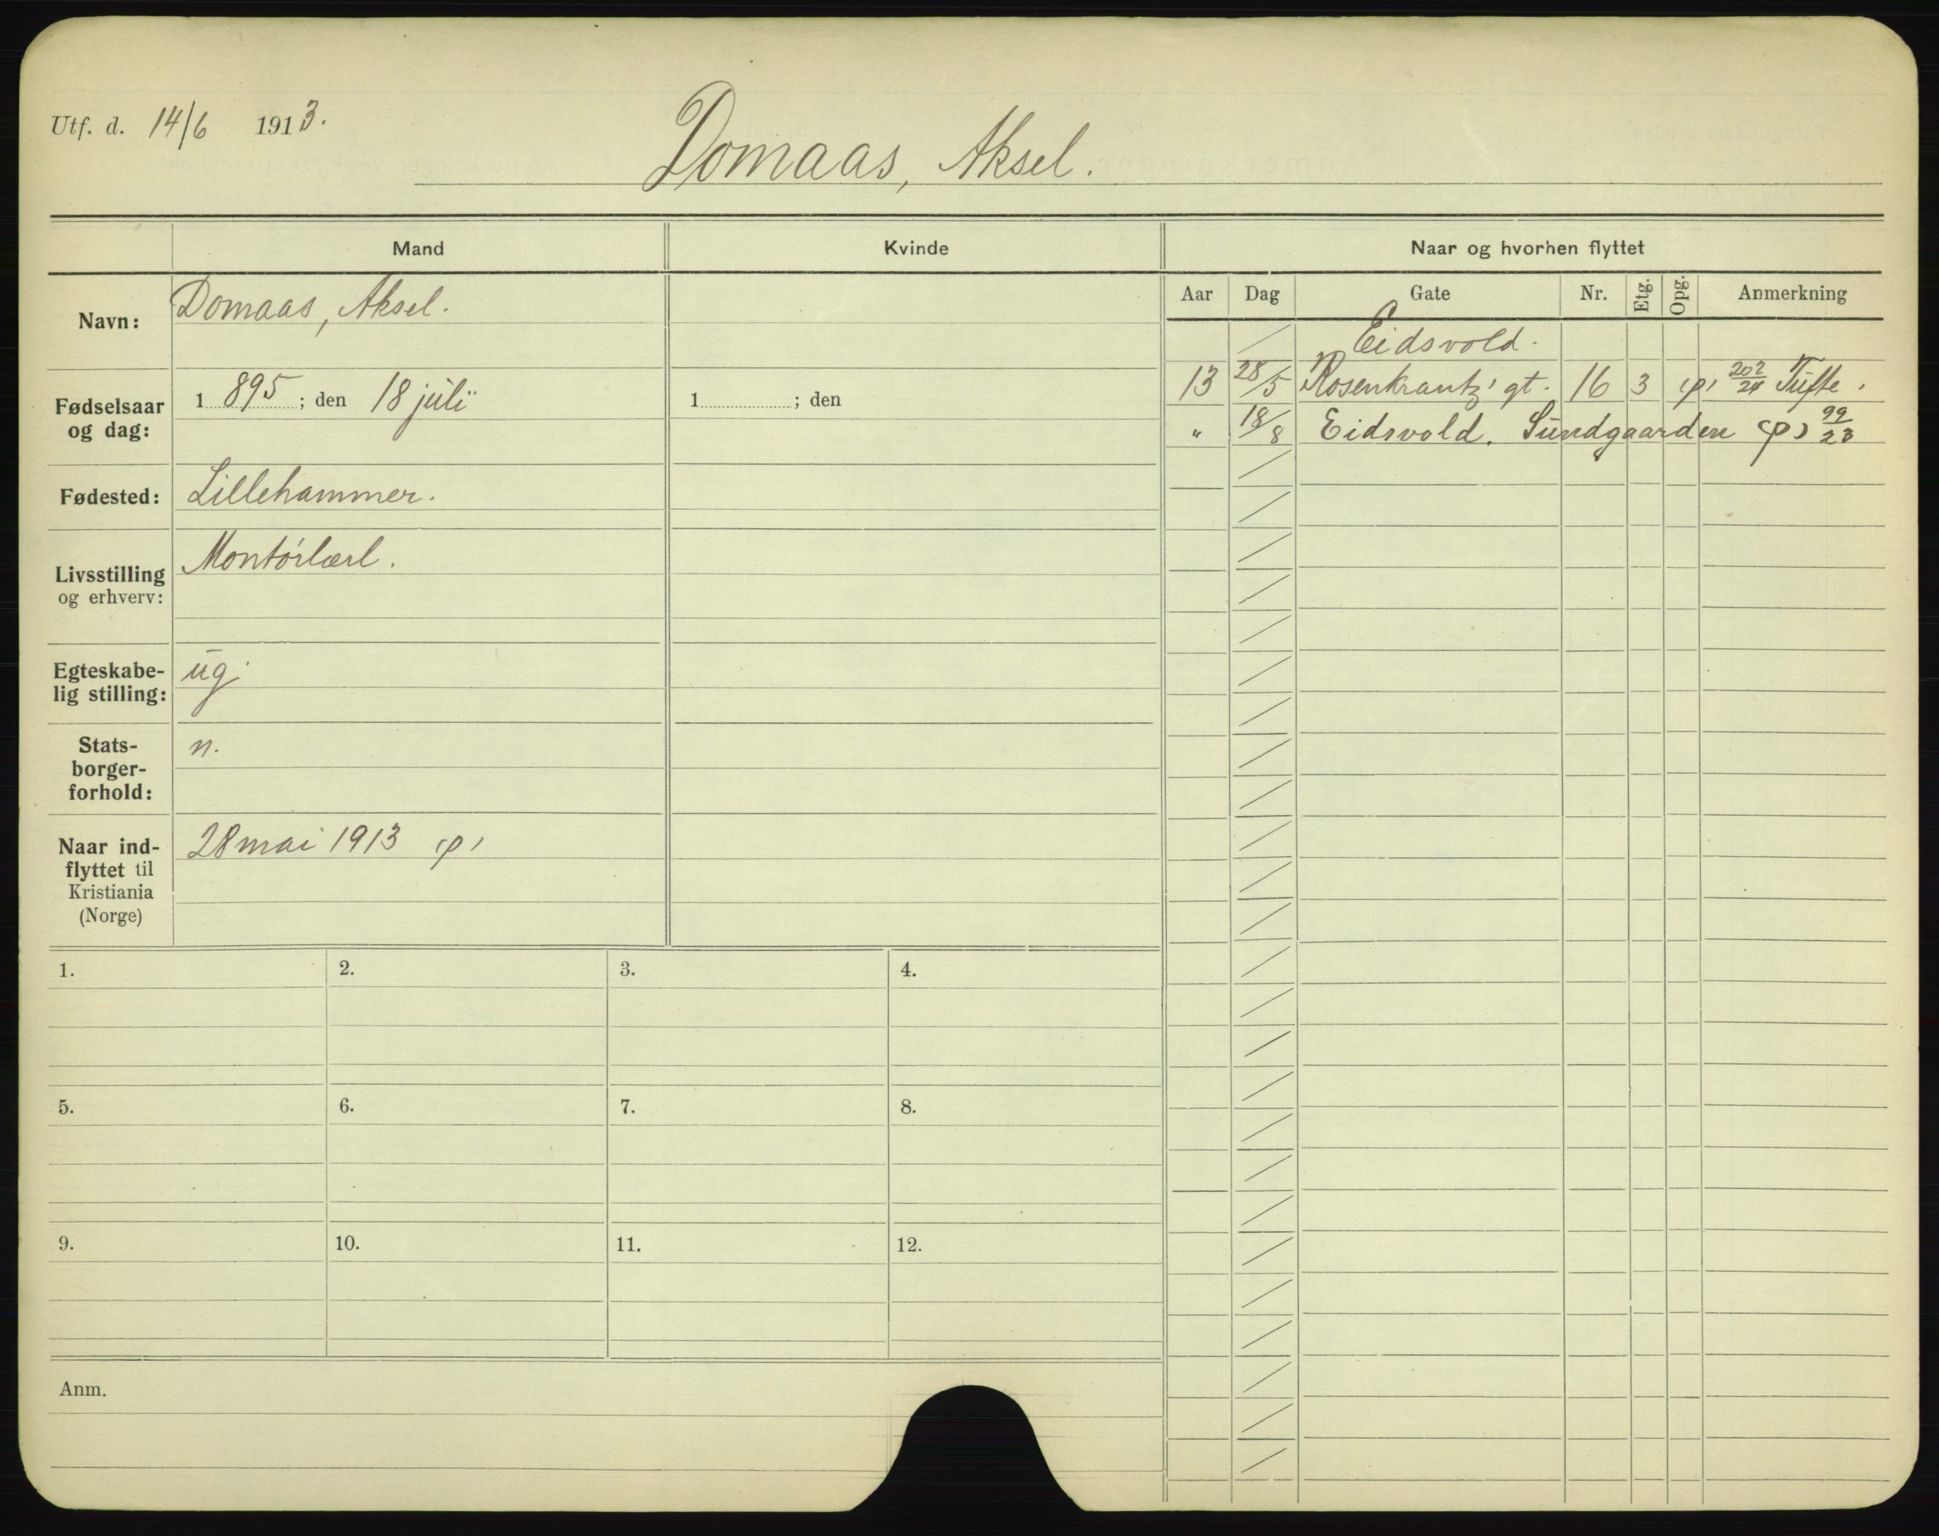 Utf. d. 14/6 1913.
Domaas, Aksel.
Mand Kvinde Naar og hvorhen flyttet
Aar Dag Gate Nr. Etg. Opg. Anmerkning
Navn: Domaas, Aksel.
Eidsvold.
13 28/5 Rosenkrantz' gt. 16 3 (p) 202/24 Tufte.
Fødselsaar og dag: 1895; den 18 juli 1 ; den
" 18/8 Eidsvold. Sundgaarden (p) 99/23
Fødested: Lillehammer.
Livsstilling og erhverv: Montørlærl.
Egteskabe-
lig stilling: ug.
Stats-
borger-
forhold: n.
Naar ind-
flyttet til
Kristiania
(Norge) 28 mai 1913 (p)
1. 2. 3. 4.
5. 6. 7. 8.
9. 10. 11. 12.
Anm.